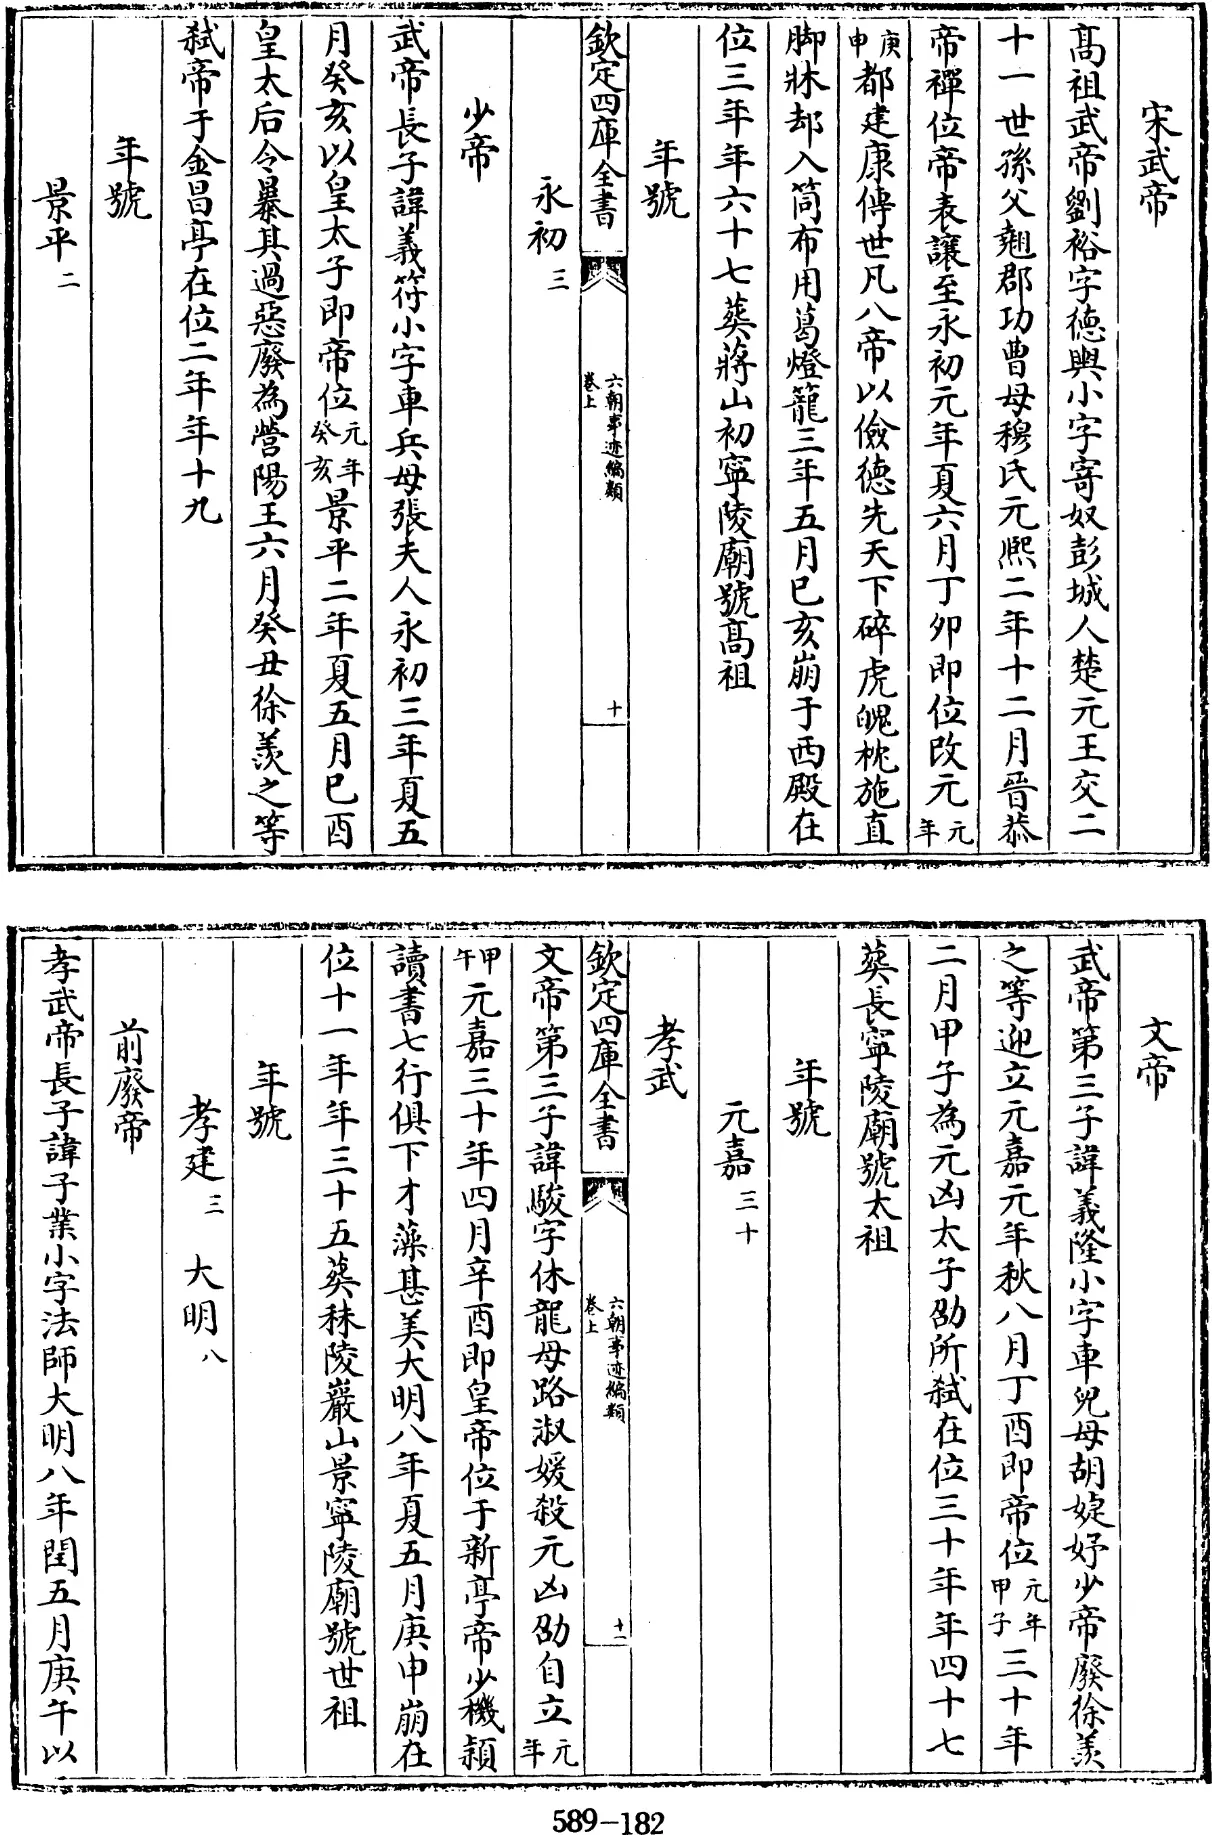 宋武帝
髙祖武帝劉裕字德輿小字寄奴彭城人楚元王交二
十一世孫父翹郡功曹母穆氏元熙二年十二月晉恭
帝禪位帝表讓至永初元年夏六月丁夘即位改元元年
庚申都建康傳世凡八帝以儉德先天下碎虎魄枕施直
脚牀却入筒布用葛燈籠三年五月巳亥崩于西殿在
位三年年六十七葬蔣山初寧陵廟號髙祖
年號
欽定四庫全書
六朝事迹編類
卷上
十
永初三
少帝
武帝長子諱義符小字車兵母張夫人永初三年夏五
月癸亥以皇太子即帝位元年癸亥景平二年夏五月巳酉
皇太后令暴其過惡廢為營陽王六月癸丑徐羨之等
弑帝于金昌亭在位二年年十九
年號
景平二
文帝
武帝第三子諱義隆小字車兒母胡婕妤少帝廢徐羨
之等迎立元嘉元年秋八月丁酉即帝位元年甲子三十年
二月甲子為元凶太子劭所弑在位三十年年四十七
葬長寧陵廟號太祖
年號
元嘉三十
孝武
欽定四庫全書
六朝事迹編類
卷上
十一
文帝第三子諱駿字休龍母路淑媛殺元凶劭自立元年
甲午元嘉三十年四月辛酉即皇帝位于新亭帝少機頴
讀書七行俱下才藻甚美大明八年夏五月庚申崩在
位十一年年三十五葬秣陵巖山景寧陵廟號世祖
年號
孝建三 大明八
前廢帝
孝武帝長子諱子業小字法師大明八年閏五月庚午以
589-182